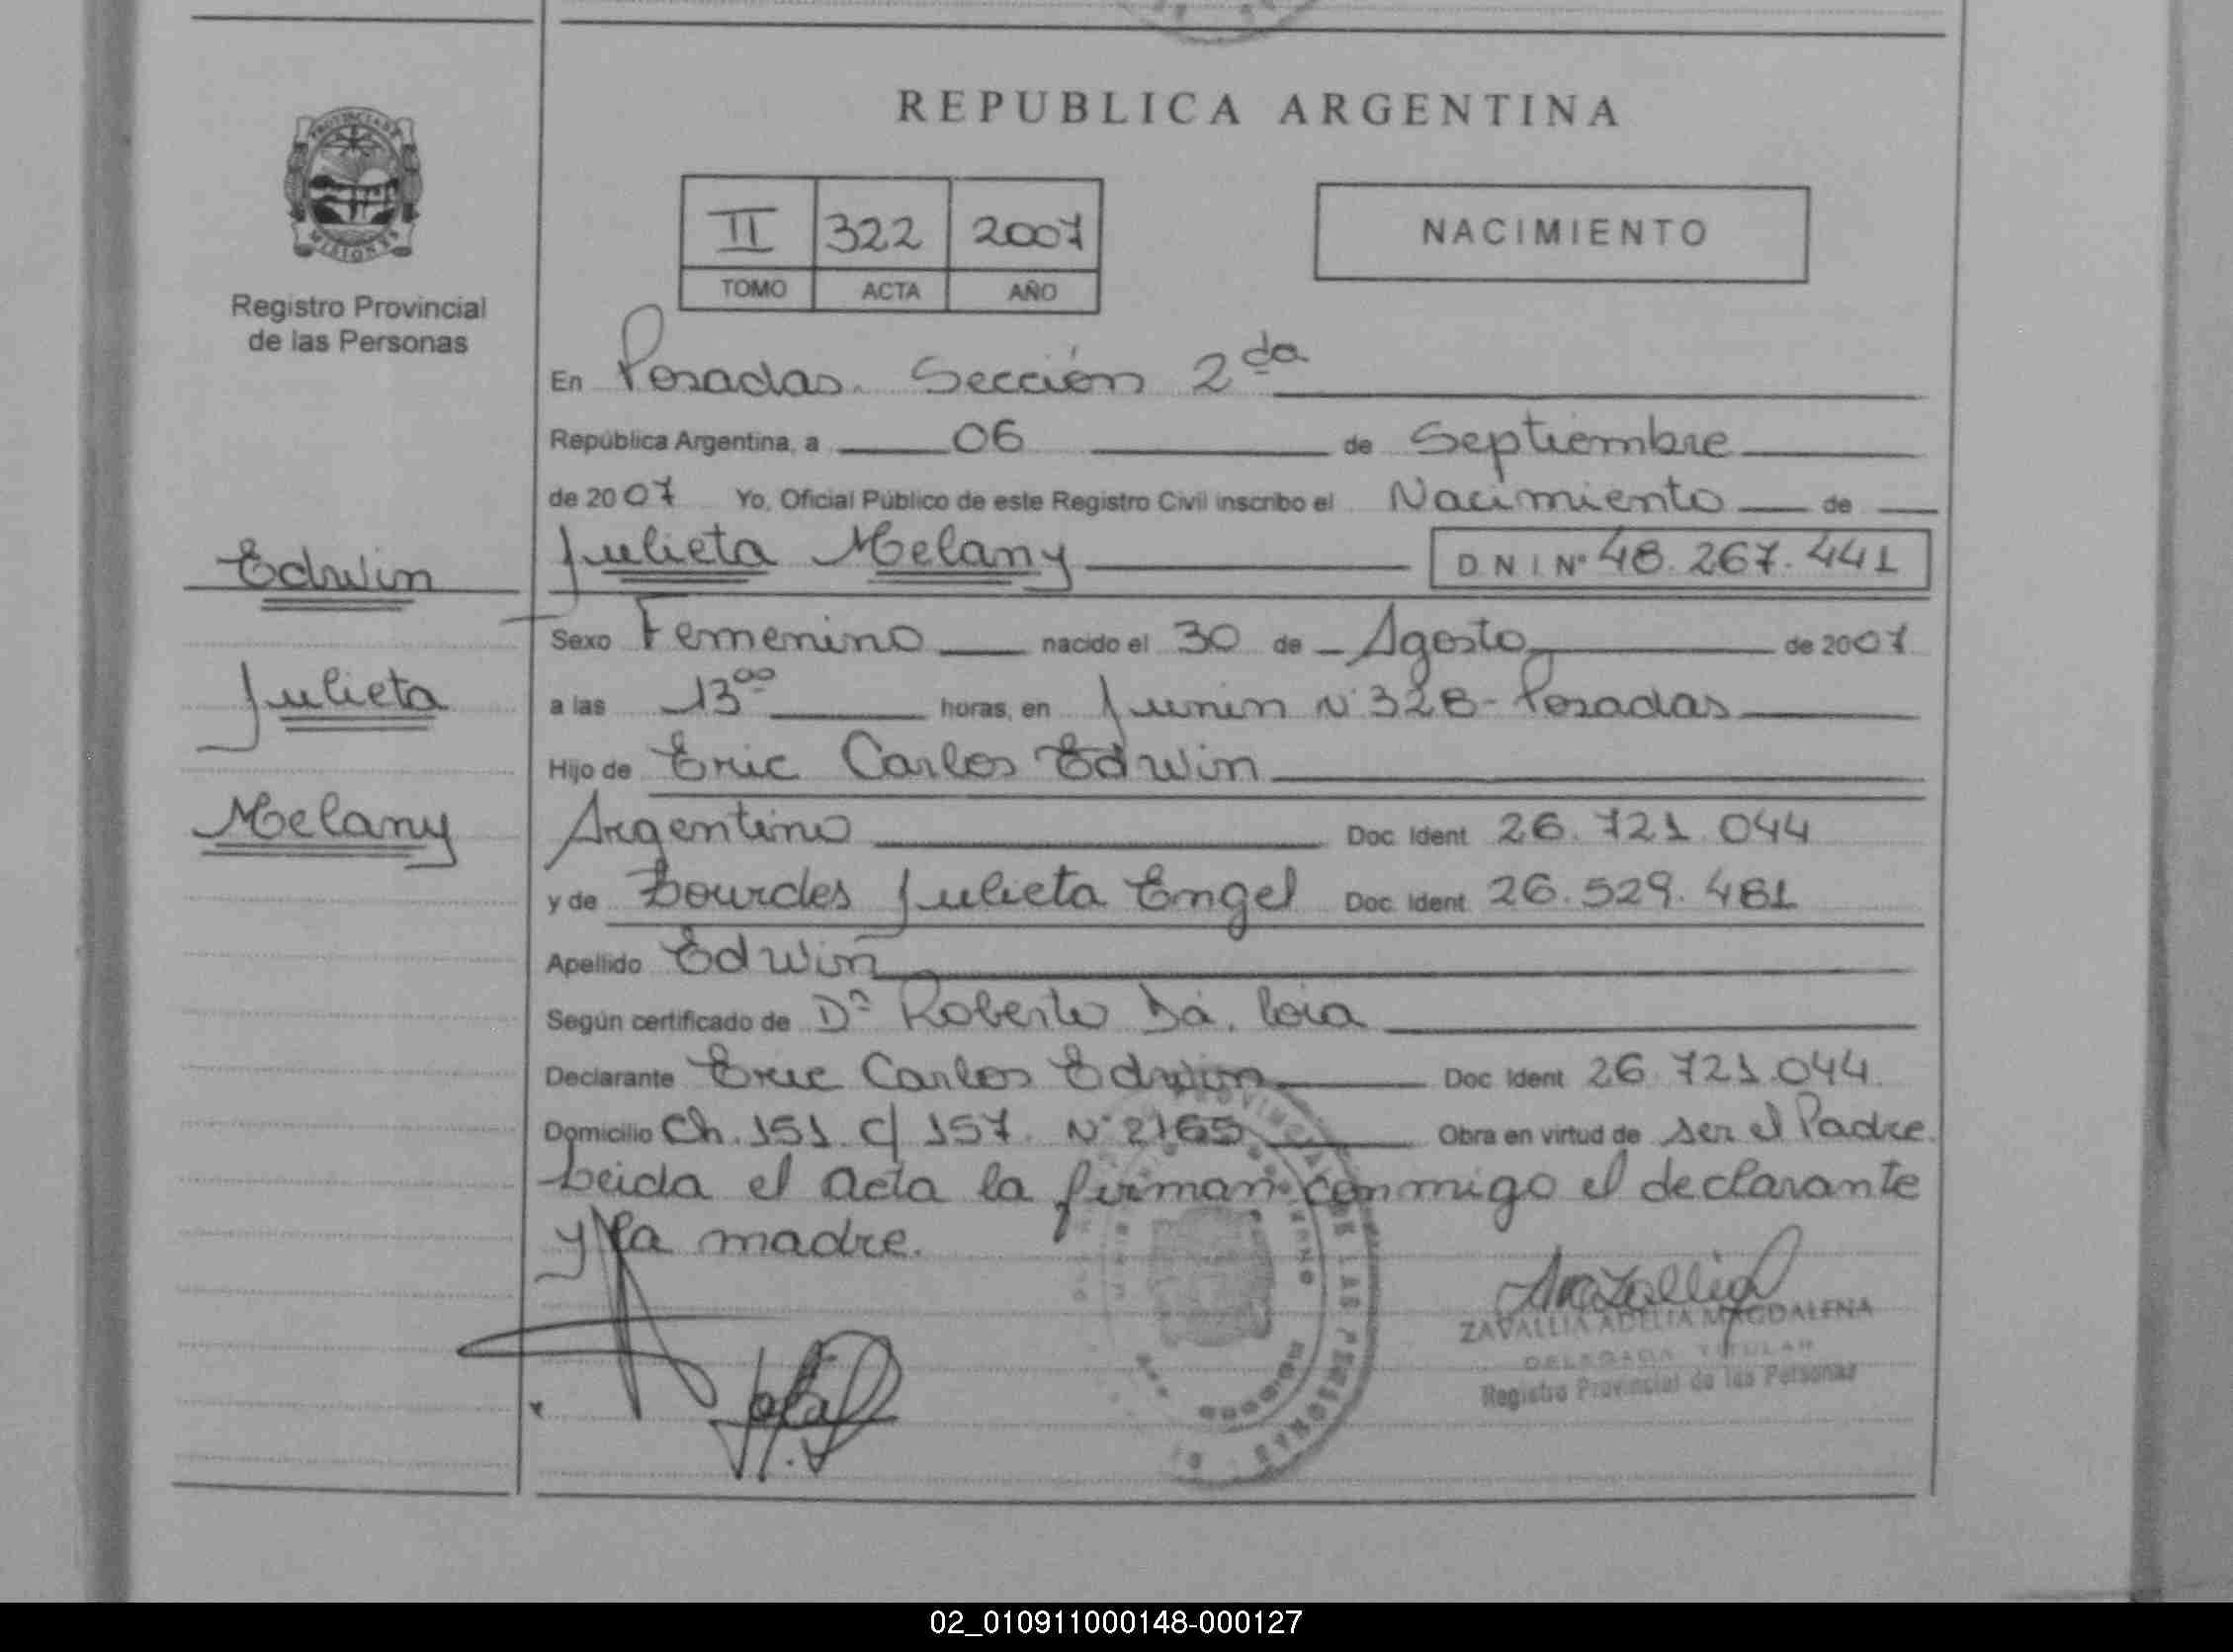 REPUBLICA ARGENTINA
PROVINCIA DE MISIONES
Registro Provincial
de las Personas
II 322 2007
TOMO ACTA AÑO
NACIMIENTO
En Posadas. Sección 2da
República Argentina, a 06 de Septiembre
de 2007 Yo, Oficial Público de este Registro Civil inscribo el Nacimiento de
Edwin
Julieta
Melany
Julieta Melany D N I Nº 48.267.441
Sexo Femenino nacido el 30 de Agosto de 2007
a las 13 00 horas, en Junin Nº 328 - Posadas
Hijo de Eric Carlos Edwin
Argentino Doc. Ident. 26.721.044
y de Lourdes Julieta Engel Doc. Ident. 26.529.481
Apellido Edwin
Según certificado de Dr Roberto Dá. Loia
Declarante Eric Carlos Edwin Doc. Ident. 26.721.044.
Domicilio Ch. 151 c/ 157 Nº 2165 Obra en virtud de ser el Padre.
Leida el acta la firman conmigo el declarante
y la madre.
ZAVALLIA ADELIA MAGDALENA
DELEGADA TITULAR
Registro Provincial de las Personas
02_010911000148-000127